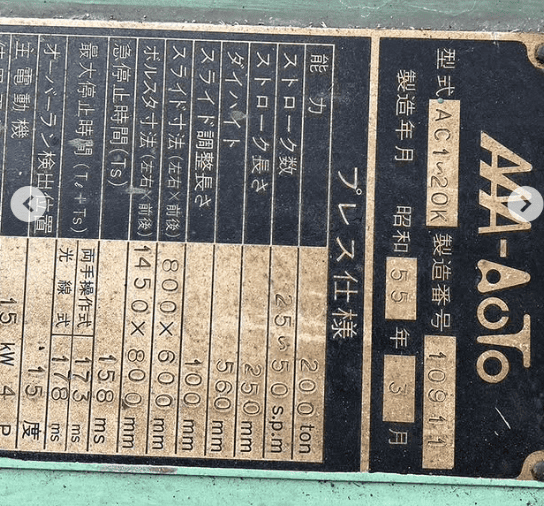 AAA-AOTO
型式 AC1〜20K 製造番号 10911
製造年月 昭和 55 年 3 月
プレス仕様
能力 200 ton
ストローク数 25〜50 s.p.m
ストローク長さ 250 mm
ダイハイト 560 mm
スライド調整長さ 100 mm
スライド寸法(左右×前後) 800×600 mm
ボルスタ寸法(左右×前後) 1450×800 mm
急停止時間(Ts) 158 ms
最大停止時間(Tℓ+Ts) 両手操作式 173 ms
光線式 178 ms
オーバーラン検出位置 15 度
主電動機 15 kW 4 P